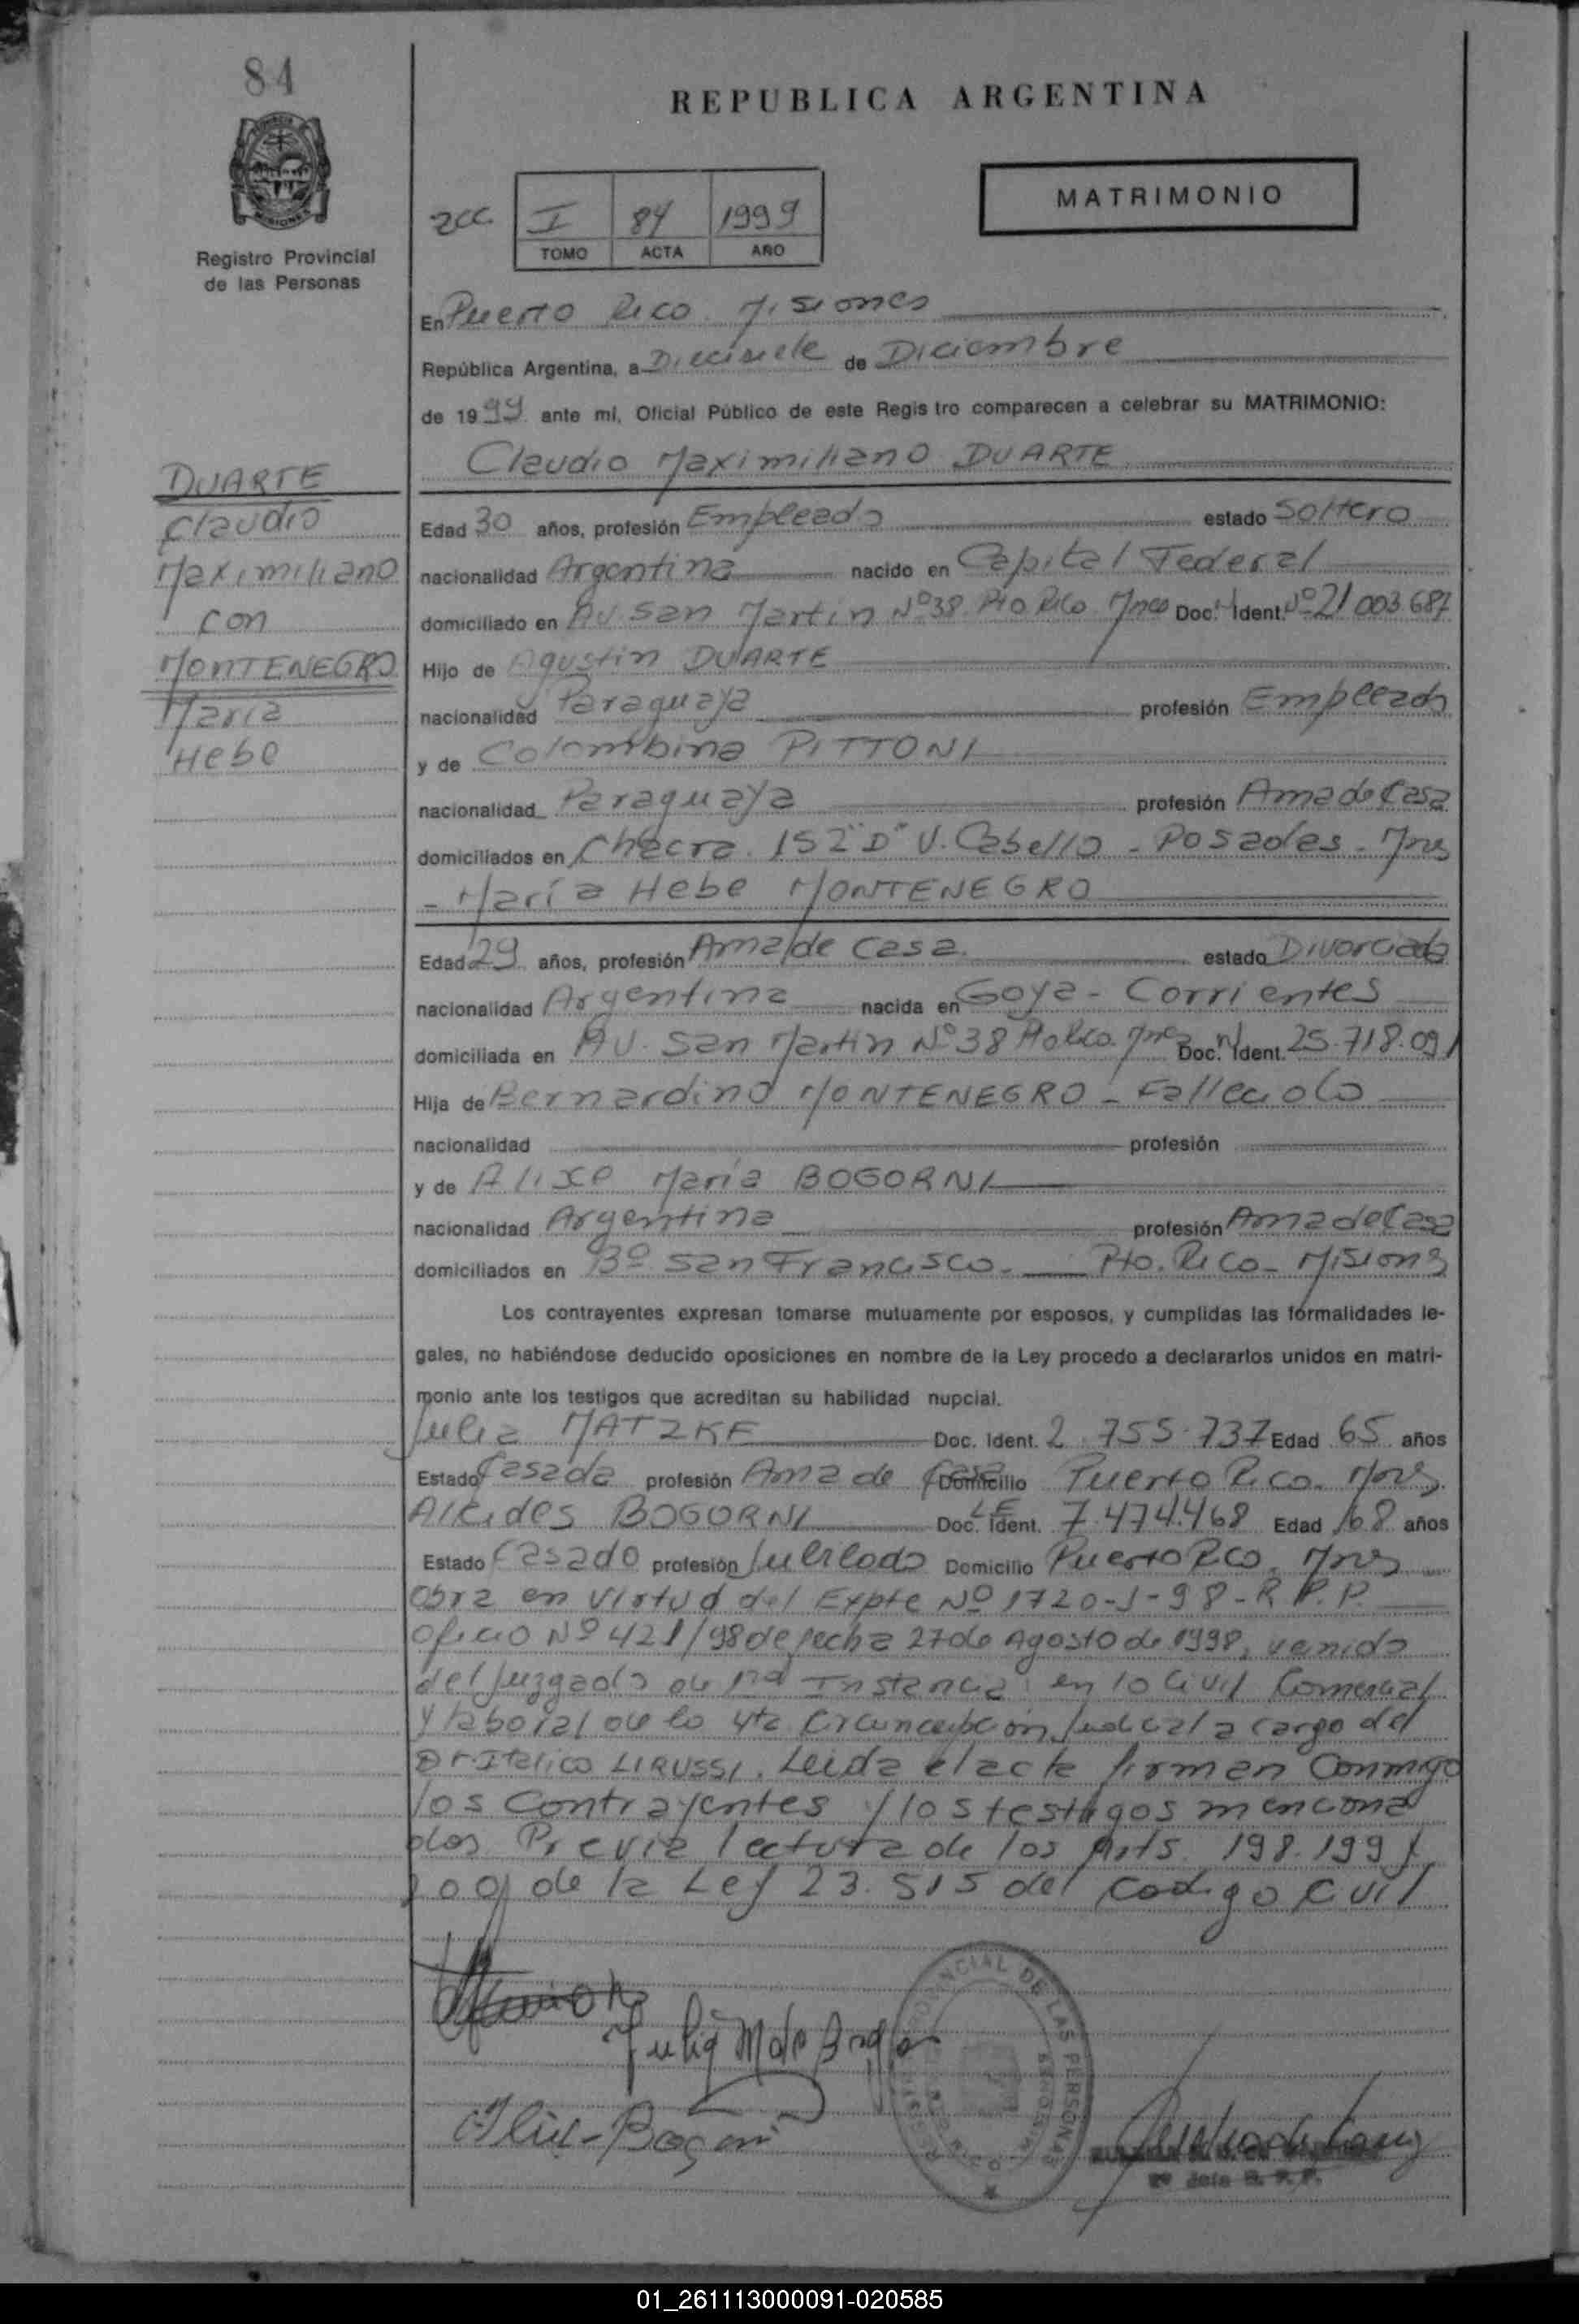 84
REPUBLICA ARGENTINA
MATRIMONIO
Registro Provincial
de las Personas
I 84 1999
TOMO ACTA AÑO
En Puerto Rico Misiones
República Argentina, a Diecisiete de Diciembre
de 1999 ante mi, Oficial Público de este Regis tro comparecen a celebrar su MATRIMONIO:
Claudio Maximiliano DUARTE
DUARTE
Claudio
Maximiliano
con
MONTENEGRO
María
Hebe
Edad 30 años, profesión Empleado estado Soltero
nacionalidad Argentina nacido en Capital Federal
domiciliado en AV. San Martin Nº38 Pto Rico Mnes Doc. Ident. Nº 21 003.687
Hijo de Agustin DUARTE
nacionalidad Paraguaya profesión Empleado
y de Colombina PITTONI
nacionalidad Paraguaya profesión Ama de Casa
domiciliados en Chacra 152 "D" V. Cabello - Posadas - Mnes
- María Hebe MONTENEGRO
Edad 29 años, profesión Ama de Casa estado Divorciada
nacionalidad Argentina nacida en Goya - Corrientes
domiciliada en AV. San Martin Nº38 Pto Rico Mnes Doc. Ident. 25.718.091
Hija de Bernardino MONTENEGRO - Fallecido
nacionalidad profesión
y de Alixe María BOGORNI
nacionalidad Argentina profesión Ama de Casa
domiciliados en Bº San Francisco - Pto. Rico - Misiones
Los contrayentes expresan tomarse mutuamente por esposos, y cumplidas las formalidades le-
gales, no habiéndose deducido oposiciones en nombre de la Ley procedo a declararlos unidos en matri-
monio ante los testigos que acreditan su habilidad nupcial.
Julia MATZKE Doc. Ident. 2.755.737 Edad 65 años
Estado Casada profesión Ama de Casa Domicilio Puerto Rico Mnes
Alcides BOGORNI Doc. LE Ident. 7.474.468 Edad 68 años
Estado Casado profesión Jubilado Domicilio Puerto Rico, Mnes
Obra en Virtud del Expte Nº 1720-J-98-R.P.P.
Oficio Nº 421/98 de fecha 27 de Agosto de 1998, venido
del Juzgado de 1ra Instancia en lo Civil Comercial
y laboral de la 4ta Circunscripción Judicial a cargo del
Dr Italico LIRUSSI. Leida el acta firman Conmigo
los Contrayentes y los testigos menciona
dos Previa lectura de los Arts. 198.199 y
200 de la Ley 23.515 del codigo Civil
Julia M de Bog
PROVINCIAL DE LAS PERSONAS
2º Jefa R. P. P.
01_261113000091-020585